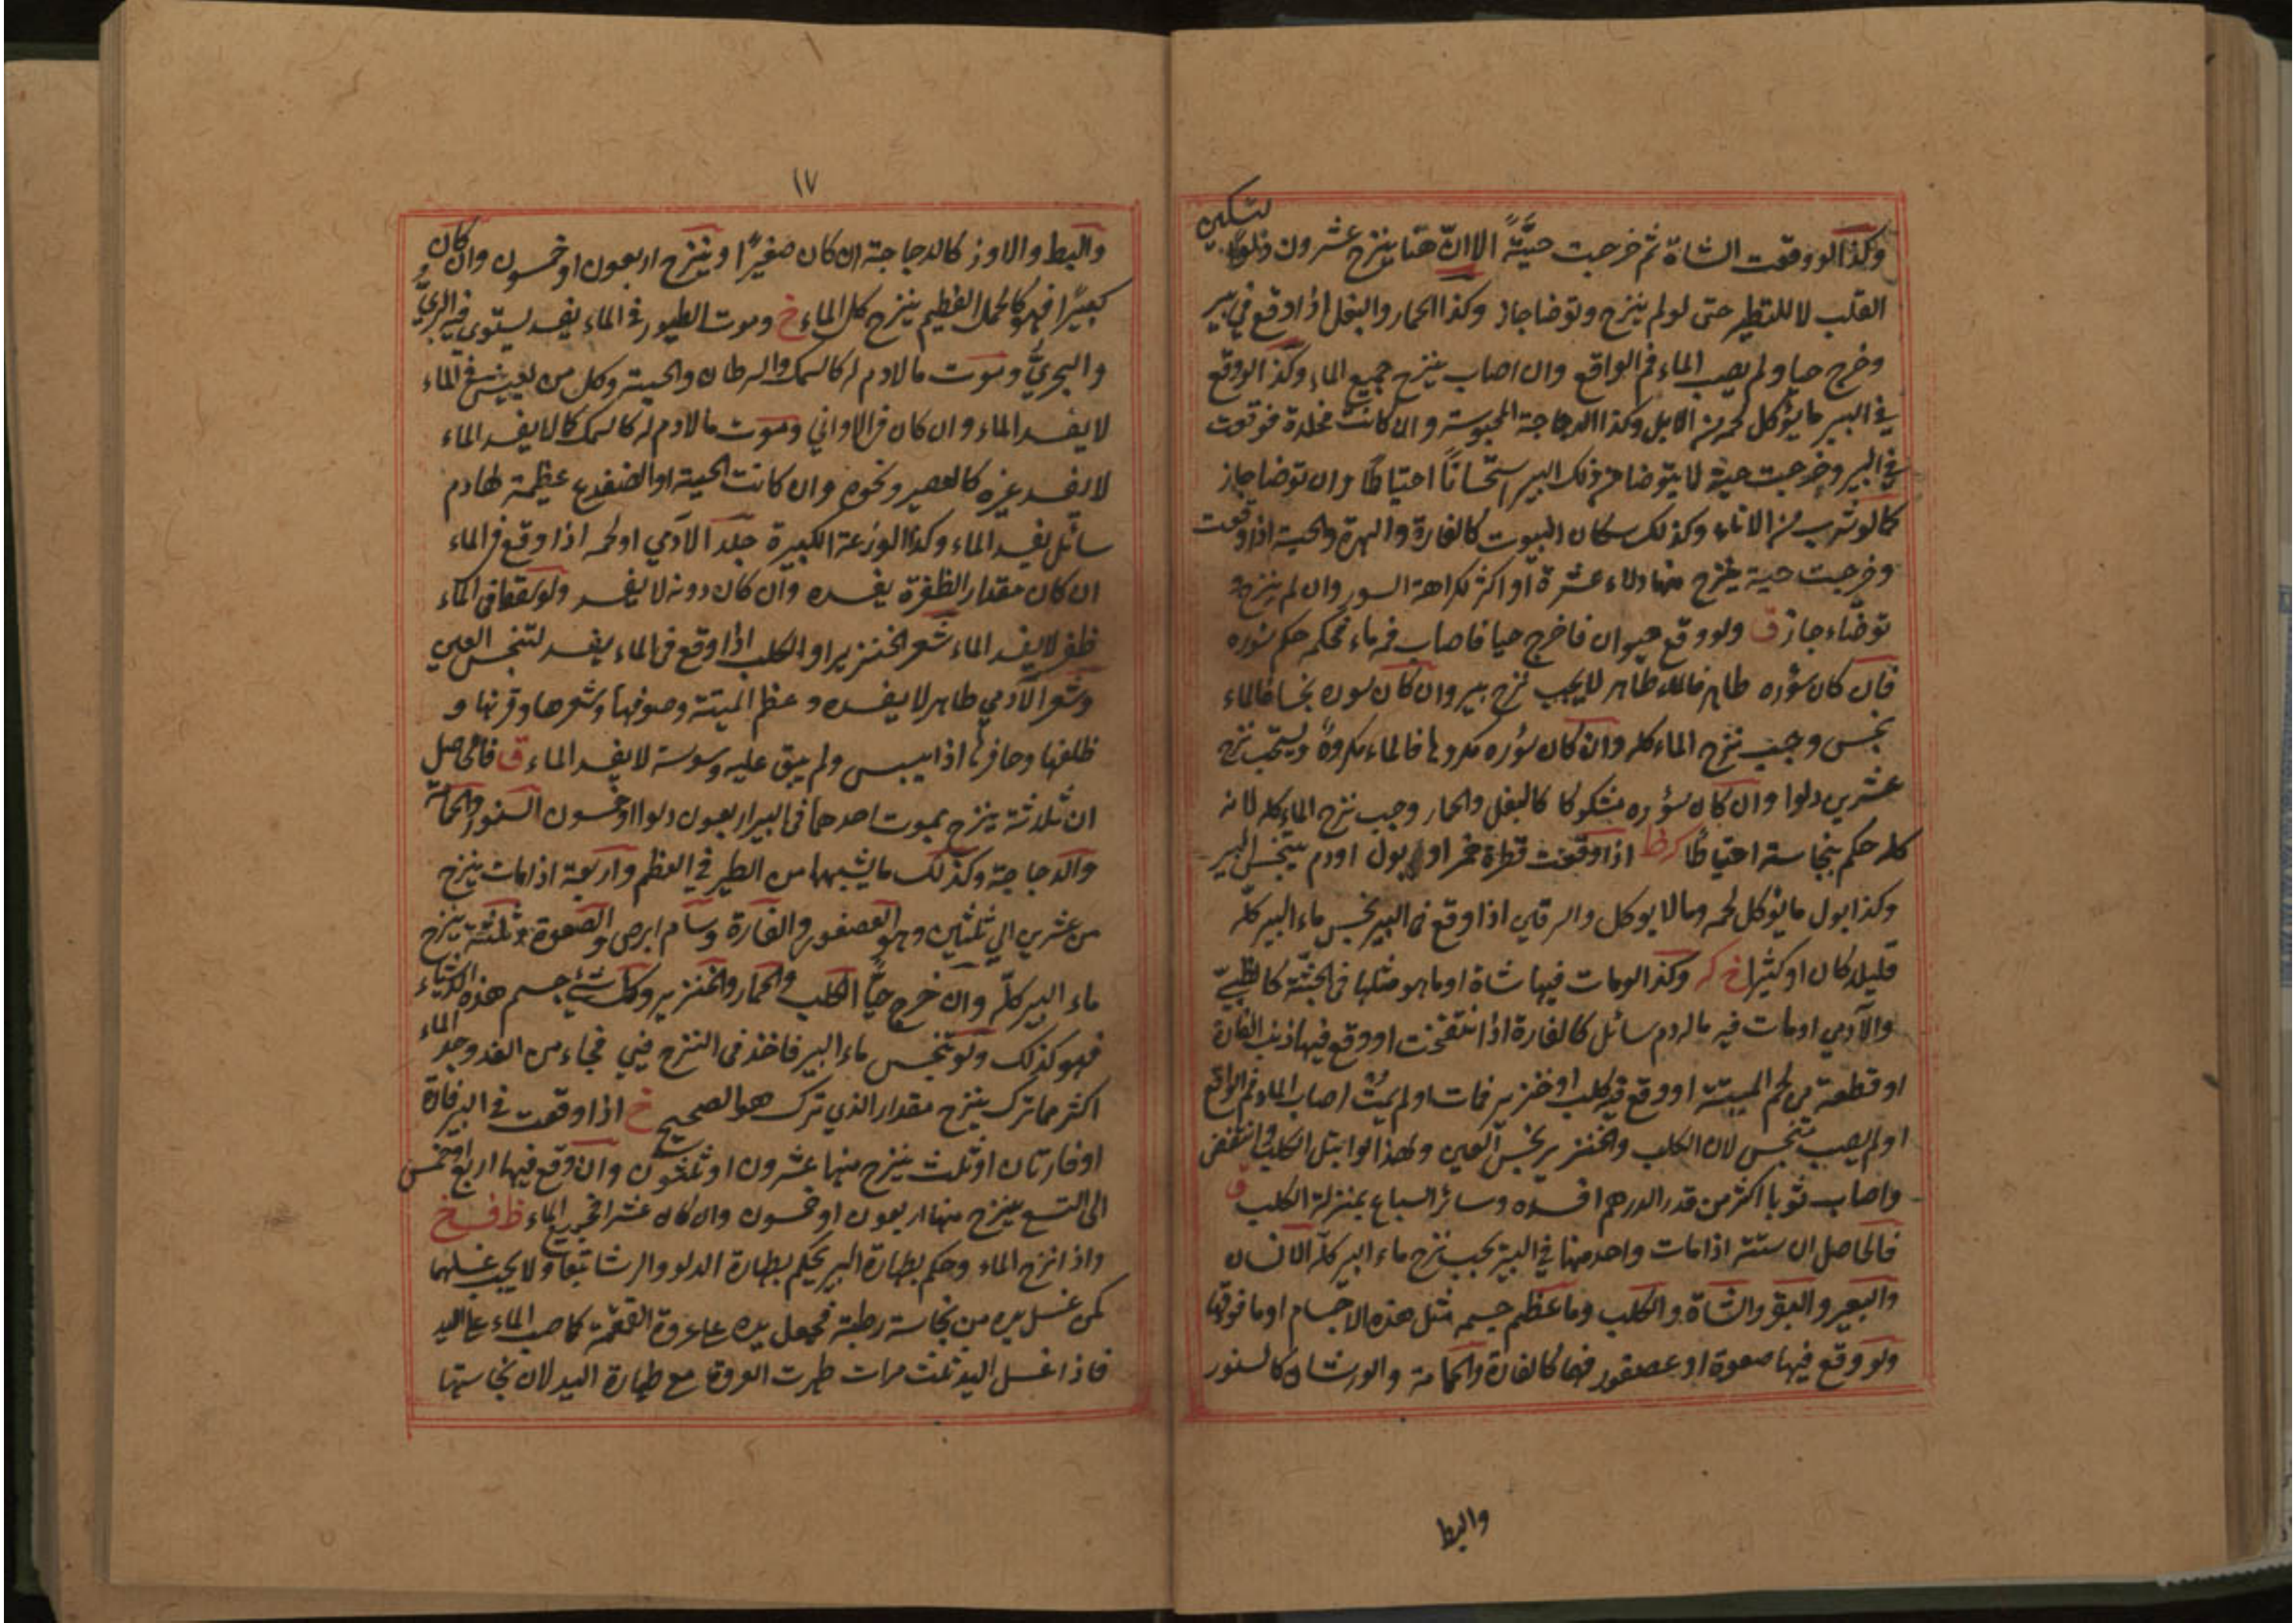 وكذا لو وقعت الشاة ثم خرجت حيَّةً الا انّ هنا ينزح عشرون دلوًا لتسكين
القلب لا للتطهر حتى لو لم ينزح وتوضا جاز وكذا الحمار والبغل اذا وقع في بير
وخرج حيا ولم يصب الماء فم الواقع وان اصاب ينزح جميع الماء وكذا لو وقع
في البير ما يؤكل لحمه من الابل وكذا الدجاجة المحبوسة وان كانت مخلاة فوقعت
في البير وخرجت حية لا يتوضا من ذلك البير استحسانًا احتياطًا وان توضا جاز
كما لو شرب من الاناء وكذلك سكان البيوت كالفارة والهرة والحية اذا وقعت
وخرجت حية ينزح منها دلاء عشرة او اكثر لكراهة السور وان لم ينزح و
توضاء جاز ق ولو وقع حيوان فاخرج حيا فاصاب فمه ماء فحكمه حكم سوره
فان كان سؤره طاهر فالماء طاهر لا يجب نزح بير وان كان سوره نجسا فالماء
نجس وجب نزح الماء كله وان كان سؤره مكروها فالماء مكروهٌ ويستحب نزح
عشرين دلوا وان كان سؤره مشكوكا كالبغل والحمار وجب نزح الماء كله لانه
كله حكم بنجاسة احتياطا اذا وقعت قطرة خمر او بول او دم يتنجس البير
وكذا بول ما يؤكل لحمه وما لا يوكل والرقاي اذا وقع في البير نجس ماء البير كلّه
قليل كان او كثيرا خ وكذا لو مات فيها شاة او ما هو مثلها في الجثّة كالظبيّ
والآدمي او مات فيه ما له دم سائل كالفارة اذا انتفخت او وقع فيها ذنب الفارة
او قطعة من لحم الميتة او وقع فيه كلب او خنزير فمات او لم يمت اصاب الماء فم الواقع
او لم يصب تنجس لان الكلب والخنزير نجس العين ولهذا لو ابتل الكلب وانتفض
واصاب ثوبا اكثر من قدر الدرهم افسده وسائر السباع بمنزلة الكلب ق
فالحاصل ان ستة اذا مات واحد منها في البير يجب نزح ماء البير كلّه الانسان
والبعير والبقر والشاة والكلب وما عظم جسمه مثل هذه الاجسام او ما فوقها
ولو وقع فيها صعوة او عصفور فهما كالفارة والحمامة والورشان كالسنور
والبط
١٧
والبط والاوز كالدجاجة ان كان صغيرًا وينزح اربعون او خمسون وان كان
كبيرًا فهو كالحمل العظيم ينزح كل الماء خ وموت الطيور في الماء يفسد يستوي فيه البريّ و
والبحريّ وموت ما لا دم له كالسمك والسرطان والحية وكل من يعيش في الماء
لا يفسد الماء وان كان في الاواني وموت ما لا دم له كالسمك كما لا يفسد الماء
لا يفسد غيره كالعصير ونحوه وان كانت الحية او الضفدع عظيمة لها دم
سائل يفسد الماء وكذا الوزغة الكبيرة جلد الآدمي او لحمه اذا وقع في الماء
ان كان مقدار الظفرة يفسده وان كان دونه لا يفسد ولو سقط في الماء
ظفر لا يفسد الماء شعر الخنزير او الكلب اذا وقع في الماء يفسد لتنجس العين
وشعر الآدمي طاهر لا يفسده وعظم الميتة وصوفها وشعرها وقرنها و
ظلفها وحافرها اذا يبس ولم يبق عليه دسومة لا يفسد الماء ق فالحاصل
ان ثلاثة ينزح بموت احدهما في البير اربعون دلوا او خمسون السنور والحمامة
والدجاجة وكذلك ما يشبهها من الطير في العظم واربعة اذا مات ينزح
من عشرين الي ثلثين وهو العصفور والفارة وسام ابرص والصعوة وثلثة ينزح
ماء البير كلّه وان خرج حيًّا الكلب والحمار والخنزير وكل شيء جسم هذه الاشياء
فهو كذلك ولو تنجس ماء البير فاخذ في النزح فيي فجاء من الغد وجد الماء
اكثر مما ترك ينزح مقدار الذي ترك هو الصحيح خ اذا وقعت في البير فارة
او فارتان او ثلث ينزح منها عشرون او ثلثون وان وقع فيها اربع او خمس
الى التسع ينزح منها اربعون او خمسون وان كان عشرا فجميع الماء ظ ف خ
واذا نزح الماء وحكم بطهارة البير يحكم بطهارة الدلو والرشا تبعا ولا يجب غسلهما
كمن غسل يده من نجاسة رطبة فجعل يده على عروة القمقمة كلما صب الماء على اليد
فاذا غسل اليد ثلث مرات طهرت العروة مع طهارة اليد لان نجاستها